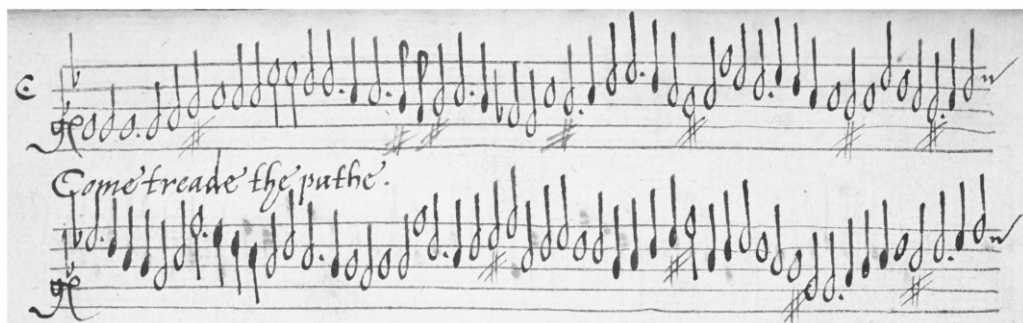 C
Come treade the pathe.